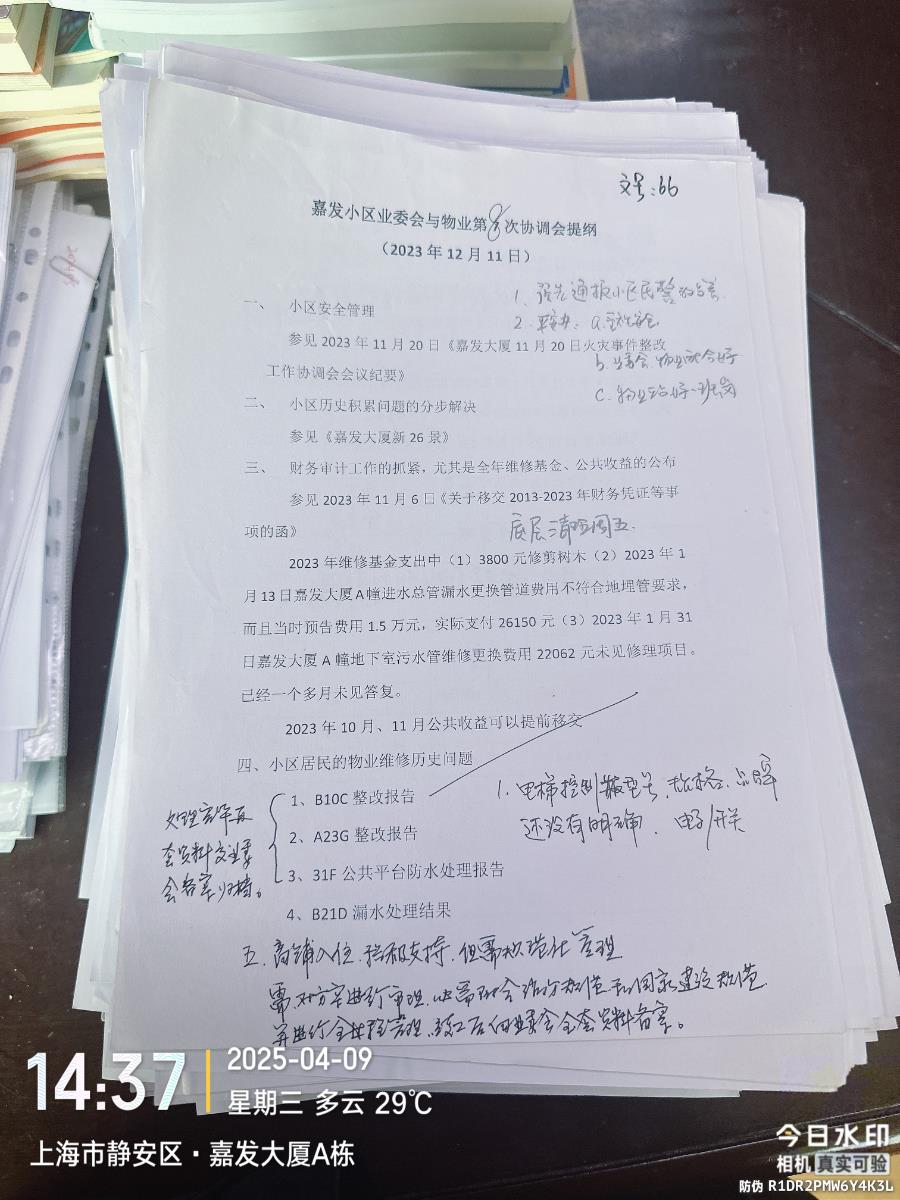 文号:66
嘉发小区业委会与物业第8次协调会提纲
（2023 年 12 月 11 日）
一、 小区安全管理
1、 通报小区民警
2.
参见 2023 年 11 月 20 日《嘉发大厦 11 月 20 日火灾事件整改
工作协调会会议纪要》
b. 业委会、物业
C. 物业
二、 小区历史积累问题的分步解决
参见《嘉发大厦新 26 景》
三、 财务审计工作的抓紧，尤其是全年维修基金、公共收益的公布
参见 2023 年 11 月 6 日《关于移交 2013-2023 年财务凭证等事
项的函》
底层 周五.
2023 年维修基金支出中（1）3800 元修剪树木（2）2023 年 1
月 13 日嘉发大厦 A 幢进水总管漏水更换管道费用不符合地埋管要求，
而且当时预告费用 1.5 万元，实际支付 26150 元（3）2023 年 1 月 31
日嘉发大厦 A 幢地下室污水管维修更换费用 22062 元未见修理项目。
已经一个多月未见答复。
2023 年 10 月、11 月公共收益可以提前移交
四、小区居民的物业维修历史问题
1、B10C 整改报告
2、A23G 整改报告
3、31F 公共平台防水处理报告
4、B21D 漏水处理结果
1. 电梯控制 型号、 格、品牌
还没有明确. 电子开关
处理完毕
套资料交业委
会备案归档。
五、商铺入住, 积极支持, 但需规范化管理
需对方案进行审理, 必需符合 规范和国家建设规范
并进行全过程管理, 竣工后向业委会全套资料备案。
14:37
2025-04-09
星期三 多云 29℃
上海市静安区·嘉发大厦A栋
今日水印
相机 真实可验
防伪 R1DR2PMW6Y4K3L